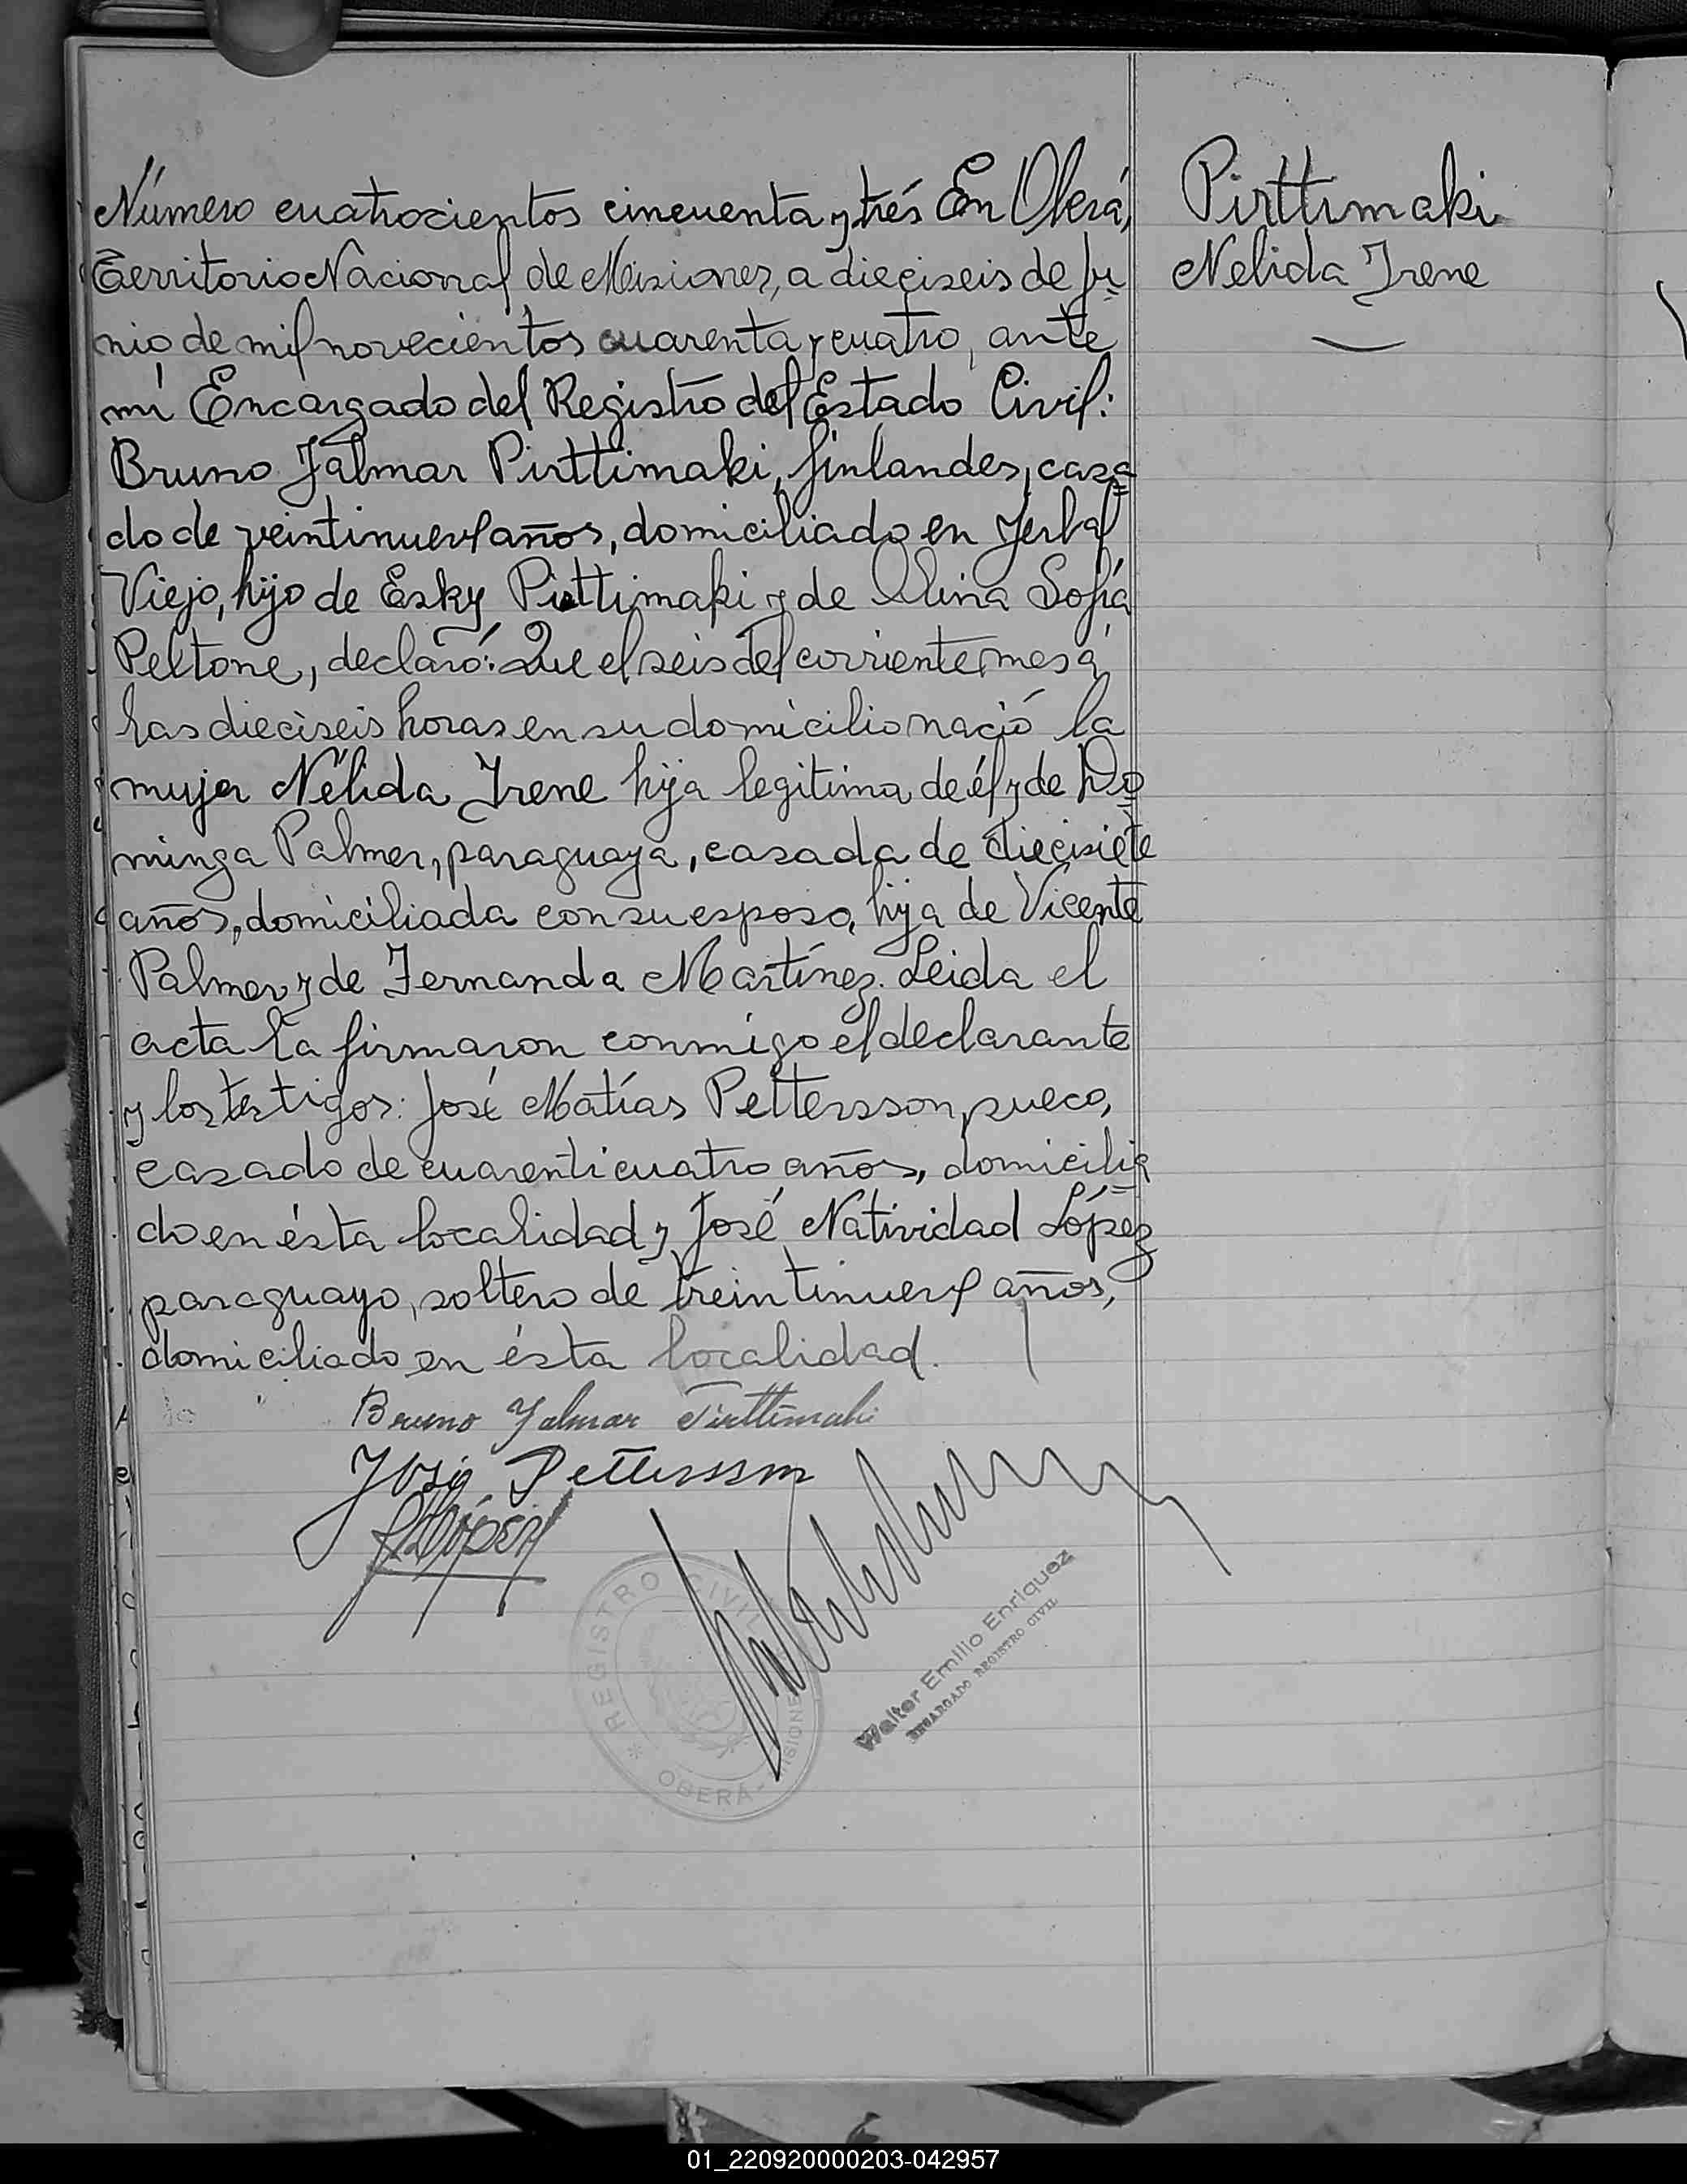 Número cuatrocientos cincuenta y trés En Oberá,
Territorio Nacional de Misiones, a dieciseis de Ju
nio de mil novecientos cuarenta y cuatro, ante
mi Encargado del Registro del Estado Civil:
Bruno Jalmar Pirttimaki, finlandes, casa
do de veintinueve años, domiciliado en Yerbal
Viejo, hijo de Esky Pirttimaki y de Sofía
Peltone, declaró: Que el seis del corriente mes á
las dieciseis horas en su domicilio nació la
mujer Nélida Irene hija legitima de él y de Do
minga Palmer, paraguaya, casada de diecisiete
años, domiciliada con su esposo, hija de Vicente
Palmer y de Fernanda Martínez. Leida el
acta la firmaron conmigo el declarante
y los testigos: José Matías Pettersson, sueco,
casado de cuarenticuatro años, domicilia
do en ésta localidad y José Natividad López
paraguayo, soltero de treintinueve años,
domiciliado en ésta localidad.
Pirttimaki
Nelida Irene
Bruno Jalmar Pirttimaki
José Pettersson
López
REGISTRO CIVIL
OBERÁ - MISIONES
Walter Emilio Enriquez
ENCARGADO REGISTRO CIVIL
01_220920000203-042957